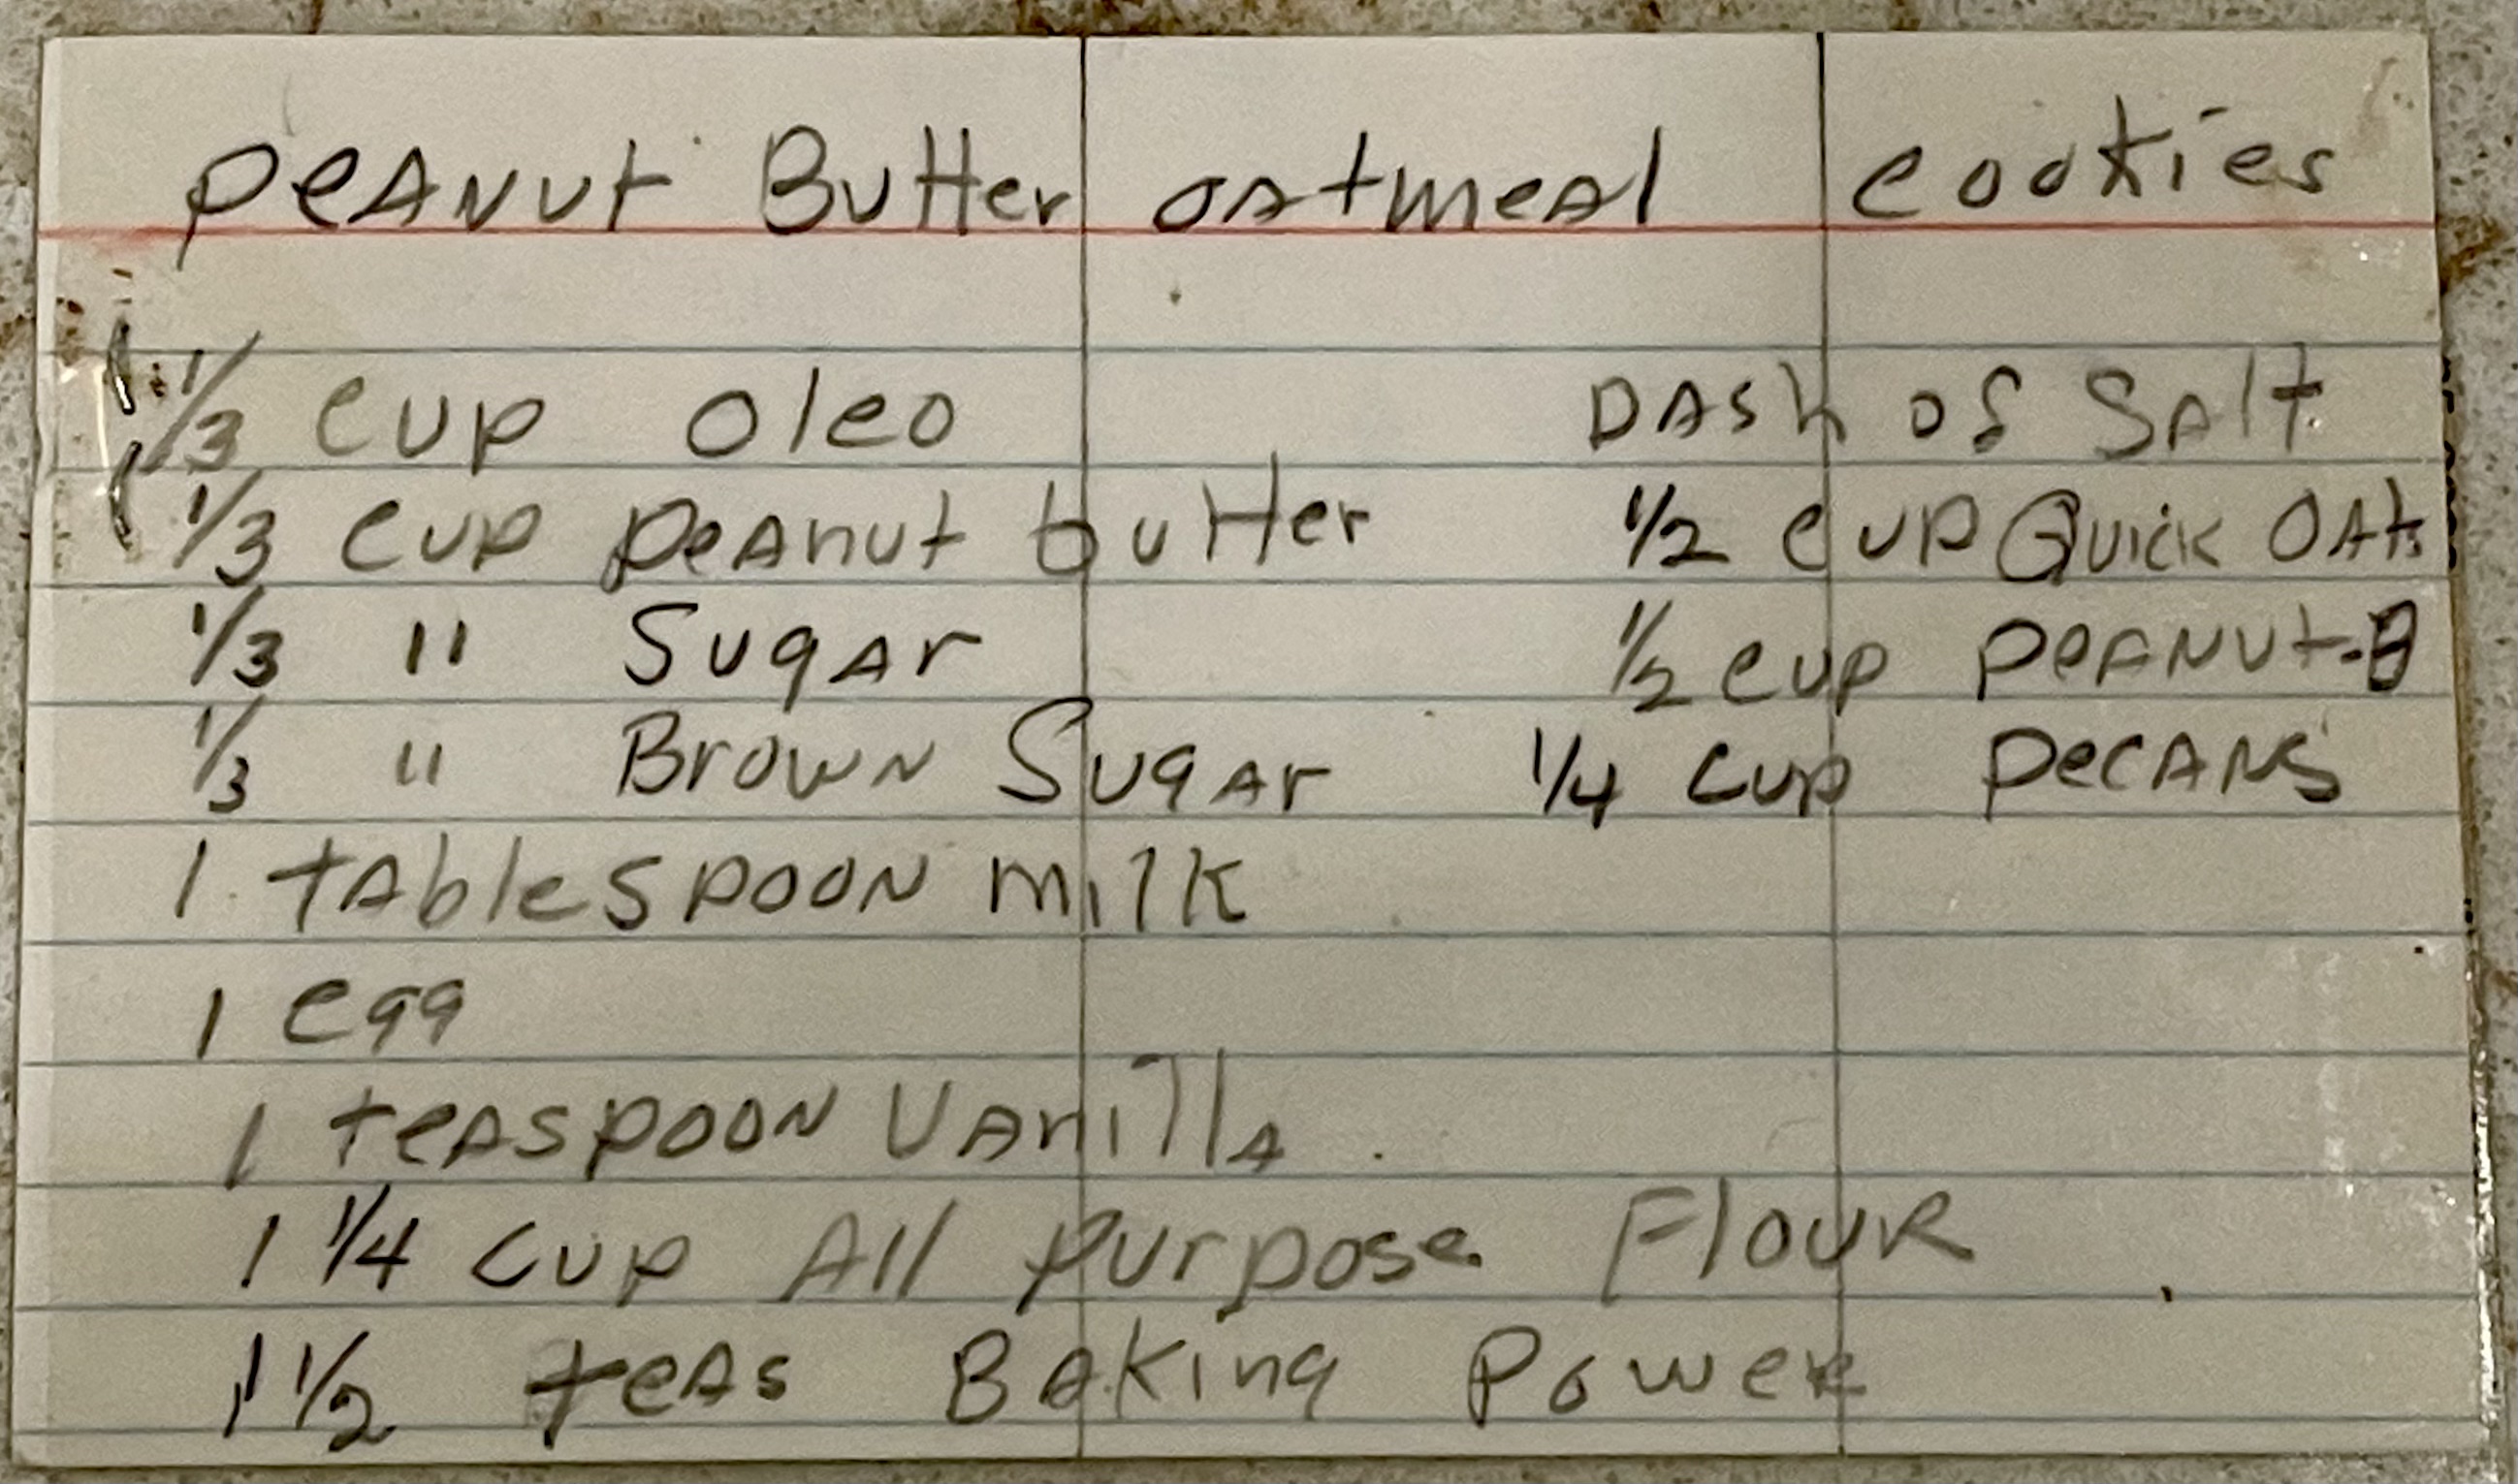 Peanut Butter oatmeal cookies
1/3 cup oleo
1/3 cup peanut butter
1/3 " Sugar
1/3 " Brown Sugar
1 tablespoon milk
1 egg
1 teaspoon Vanilla
1 1/4 cup All purpose Flour
1 1/2 teas Baking Power
Dash of Salt
1/2 cup Quick Oats
1/2 cup Peanut-B
1/4 cup Pecans